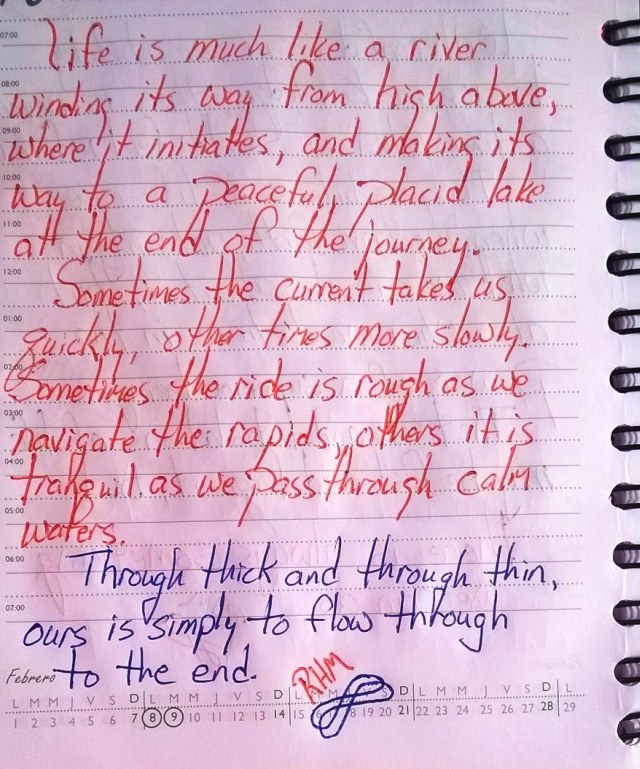 07:00
life is much like a river
08:00
winding its way from high above,
09:00
where it initiates, and making its
10:00
way to a peaceful, placid lake
11:00
at the end of the journey.
12:00
Sometimes the current takes us
01:00
quickly, other times more slowly.
02:00
Sometimes the ride is rough as we
03:00
navigate the rapids, others it is
04:00
tranquil as we pass through calm
05:00
waters.
06:00
Through thick and through thin,
07:00
ours is simply to flow through
to the end.
RHM
Febrero
L M M J V S D L M M J V S D L S D L M M J V S D L
1 2 3 4 5 6 7 8 9 10 11 12 13 14 15 18 19 20 21 22 23 24 25 26 27 28 29